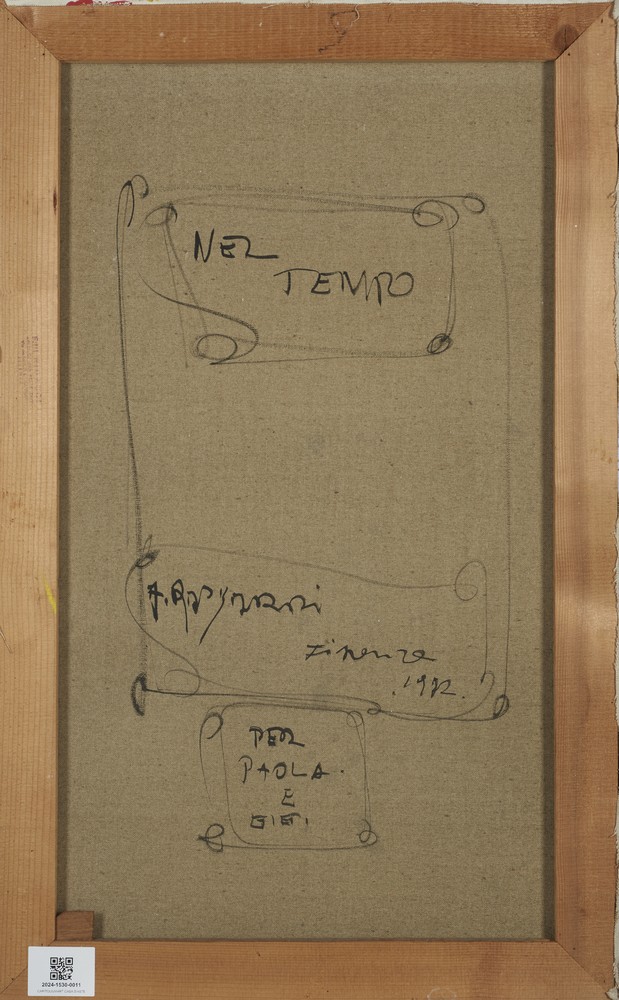 NEL
TEMPO
Firenze
1992.
PER
PAOLA.
E
GIGI.
2024-1530-0011